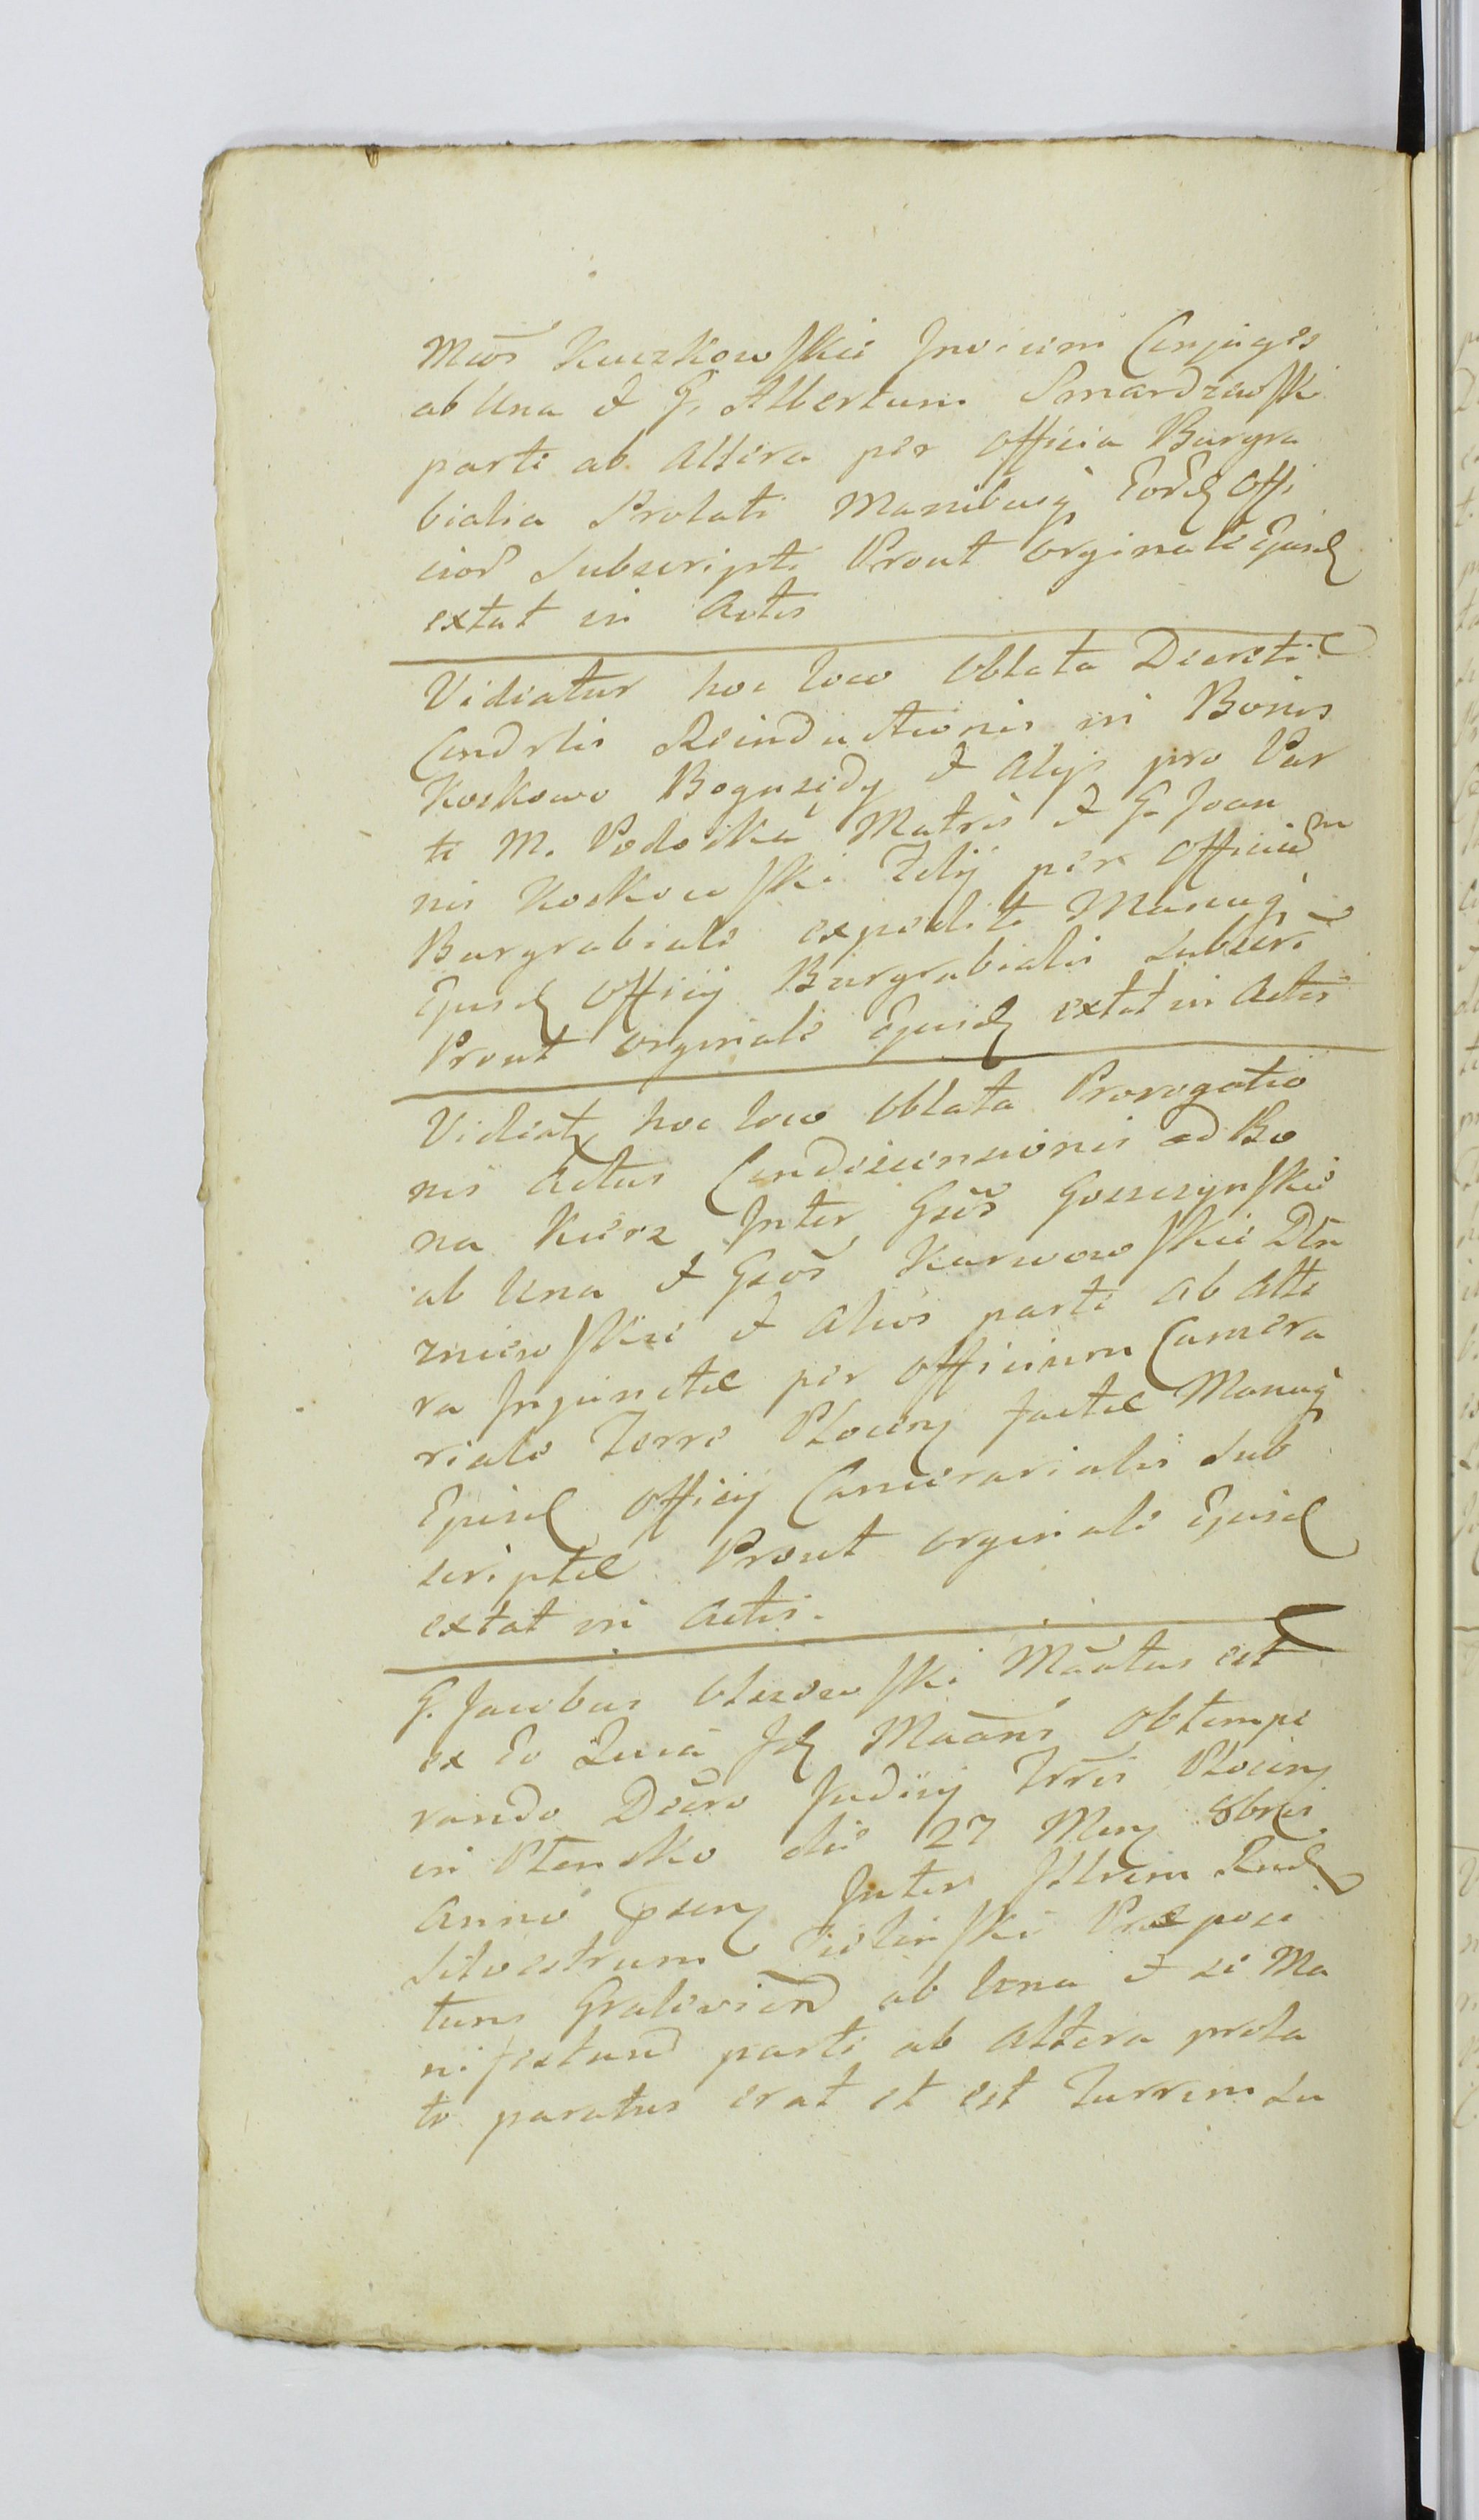 Mcos Kuczkowskie Invicem Conjuges
ab Una & G. Albertum Smardzewski
parte ab Altera per Officia Burgra
bialia Prolati Manibusq Eord Offi
cior Subscripti Prout Orginale Ejusd
extat in Actis
Videatur hoc loco Oblata Decreti
Condrlis Reinductionis in Bonis
Koskowo Bogusędy & Alijs pro Par
te M. Podoska Matris & G. Joan
nis Koskowski Filij per Officium
Burgrabiale expediti Manuq
Ejusd Officij Burgrabialis Subscri
Prout Orginale Ejusd extat in Actis
Videatr hoc loco Oblata Prorogatio
nis Actus Condescensionis ad Bo
na Kuerz Inter Gsos Goszczynskie
ab Una & Gsos Karwowskie
zniewskie & Alios parte ab Alte
ra Injunctae per Officium Camera
riale Terre Plocen factae Manuq
Ejusd Officij Camerarialis Sub
scriptae Prout Orginale Ejusd
extat in Actis.
G. Jacobus Olszewski Maatus est
ex Eo Quia Id Maans Obtempe
rando Decro Judicij Trris Plocen
in Plonsko die 27 Mens 8bris
Anno psen Inter Illrem Rnd
Silvestrum Zielinski Praeposi
tum Gralevien ab Una & se Ma
nifestand parte ab Altera prola
to paratus erat et est Turrim Su